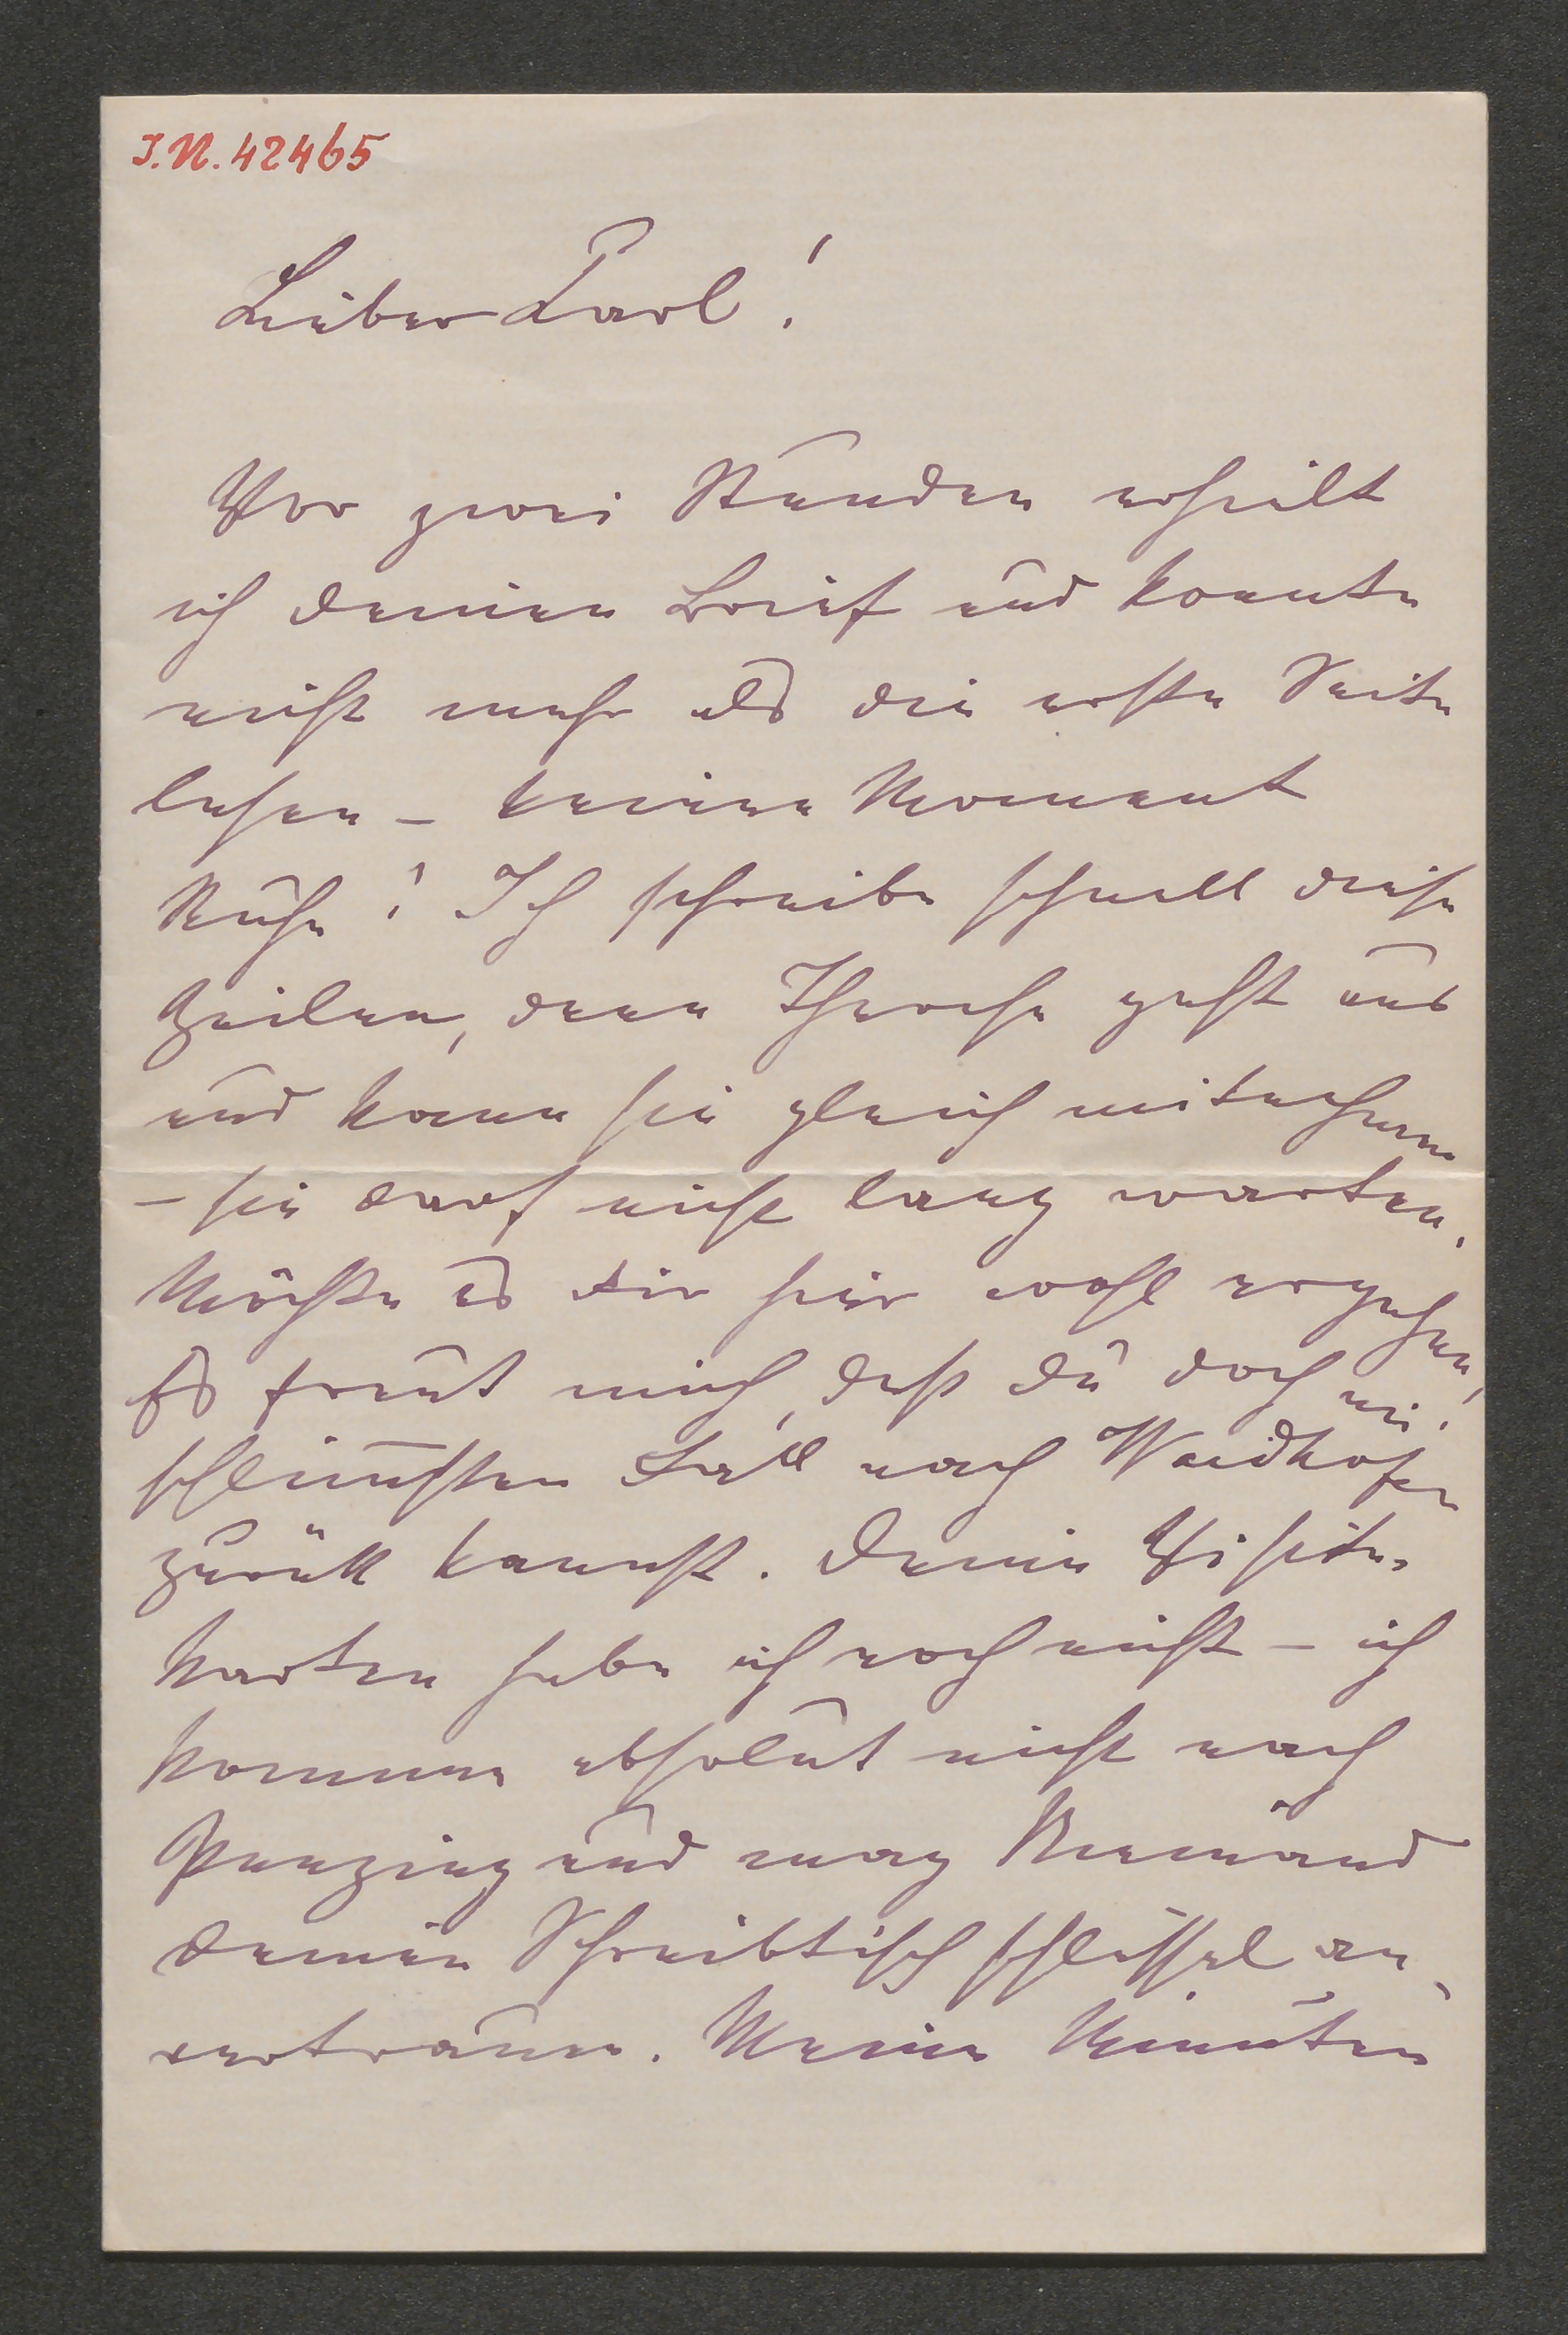 I.N. 42465
Lieber Karl!
Vor zwei Stunden erhielt
ich deinen Brief und konnte
nicht mehr als die erste Seite
lesen – keinen Moment
Ruhe! Ich schreibe schnell diese
Zeilen, denn geht aus
und kann sie gleich mitnehmen
– sie darf nicht lang warten.
Möchte es dir hier wohl ergehen,
Es freut mich, daß du doch im
schlimmsten Fall nach Waidhofen
zurück kannst. Deine Visite-
karten habe ich noch nicht – ich
komme absolut nicht nach
Penzing und mag Niemand
deinen Schreibtischschlüssel an-
vertrauen. Meine Minuten